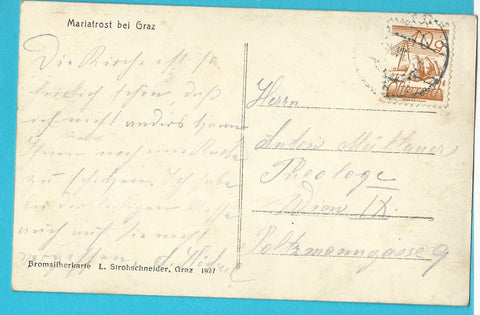 Mariatrost bei Graz
Die Kirche ist so
herrlich schön, daß
ich nicht anders kann
Ihnen noch eine Karte
zu schicken. Ich habe
bei der heiligen Messe
auch auf Sie nicht
vergessen.
Herrn
Anton
Theologe
Wien IX.
Boltzmanngasse 9
Bromsilberkarte L. Strohschneider, Graz 1927